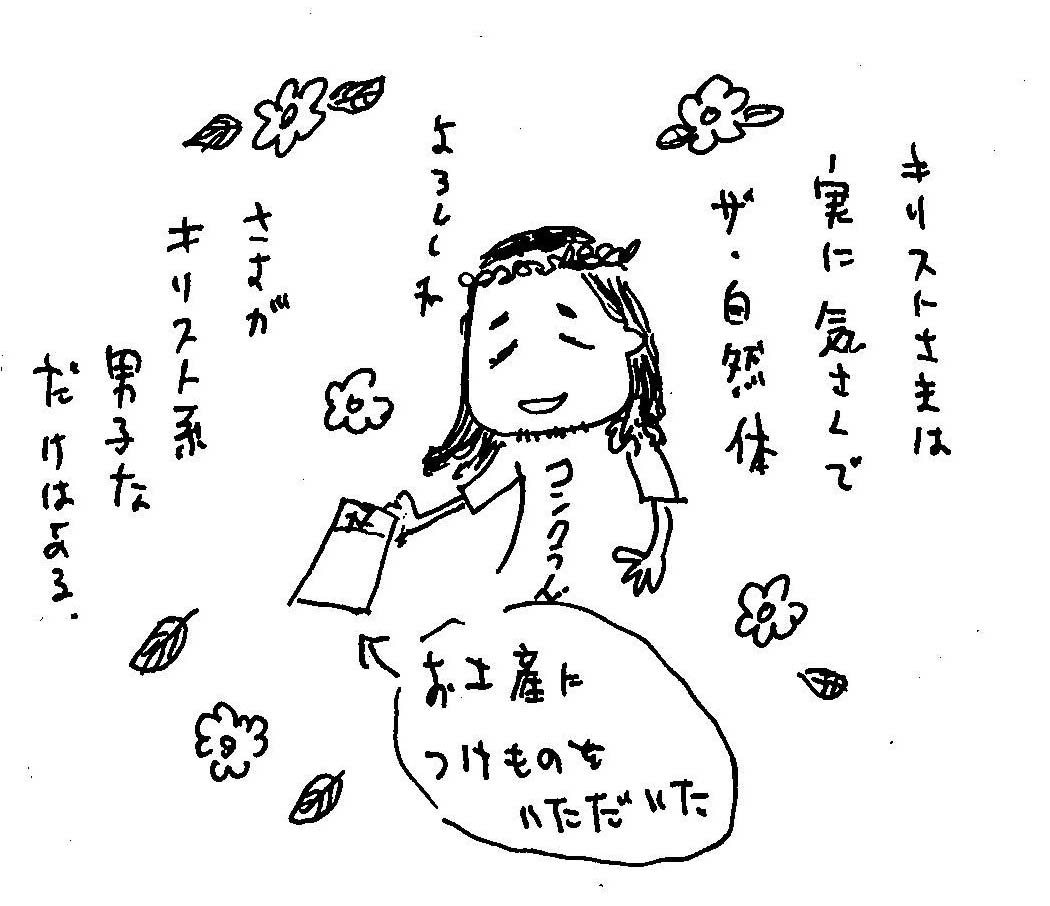 キリストさまは
実に気さくで
ザ・自然体
よろしくね
さすが
キリスト系
男子な
だけはある.
お土産に
つけものを
いただいた